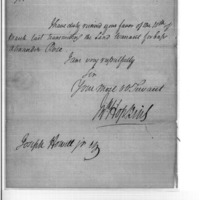 Sir
I have duly received your favor of the 20th of
March last transmitting the Land Warrant for Capt
Alexander Rose.
I am very respectfully
Sir
Your Most Obt Servant
W Hopkins
Joseph Howell Jr